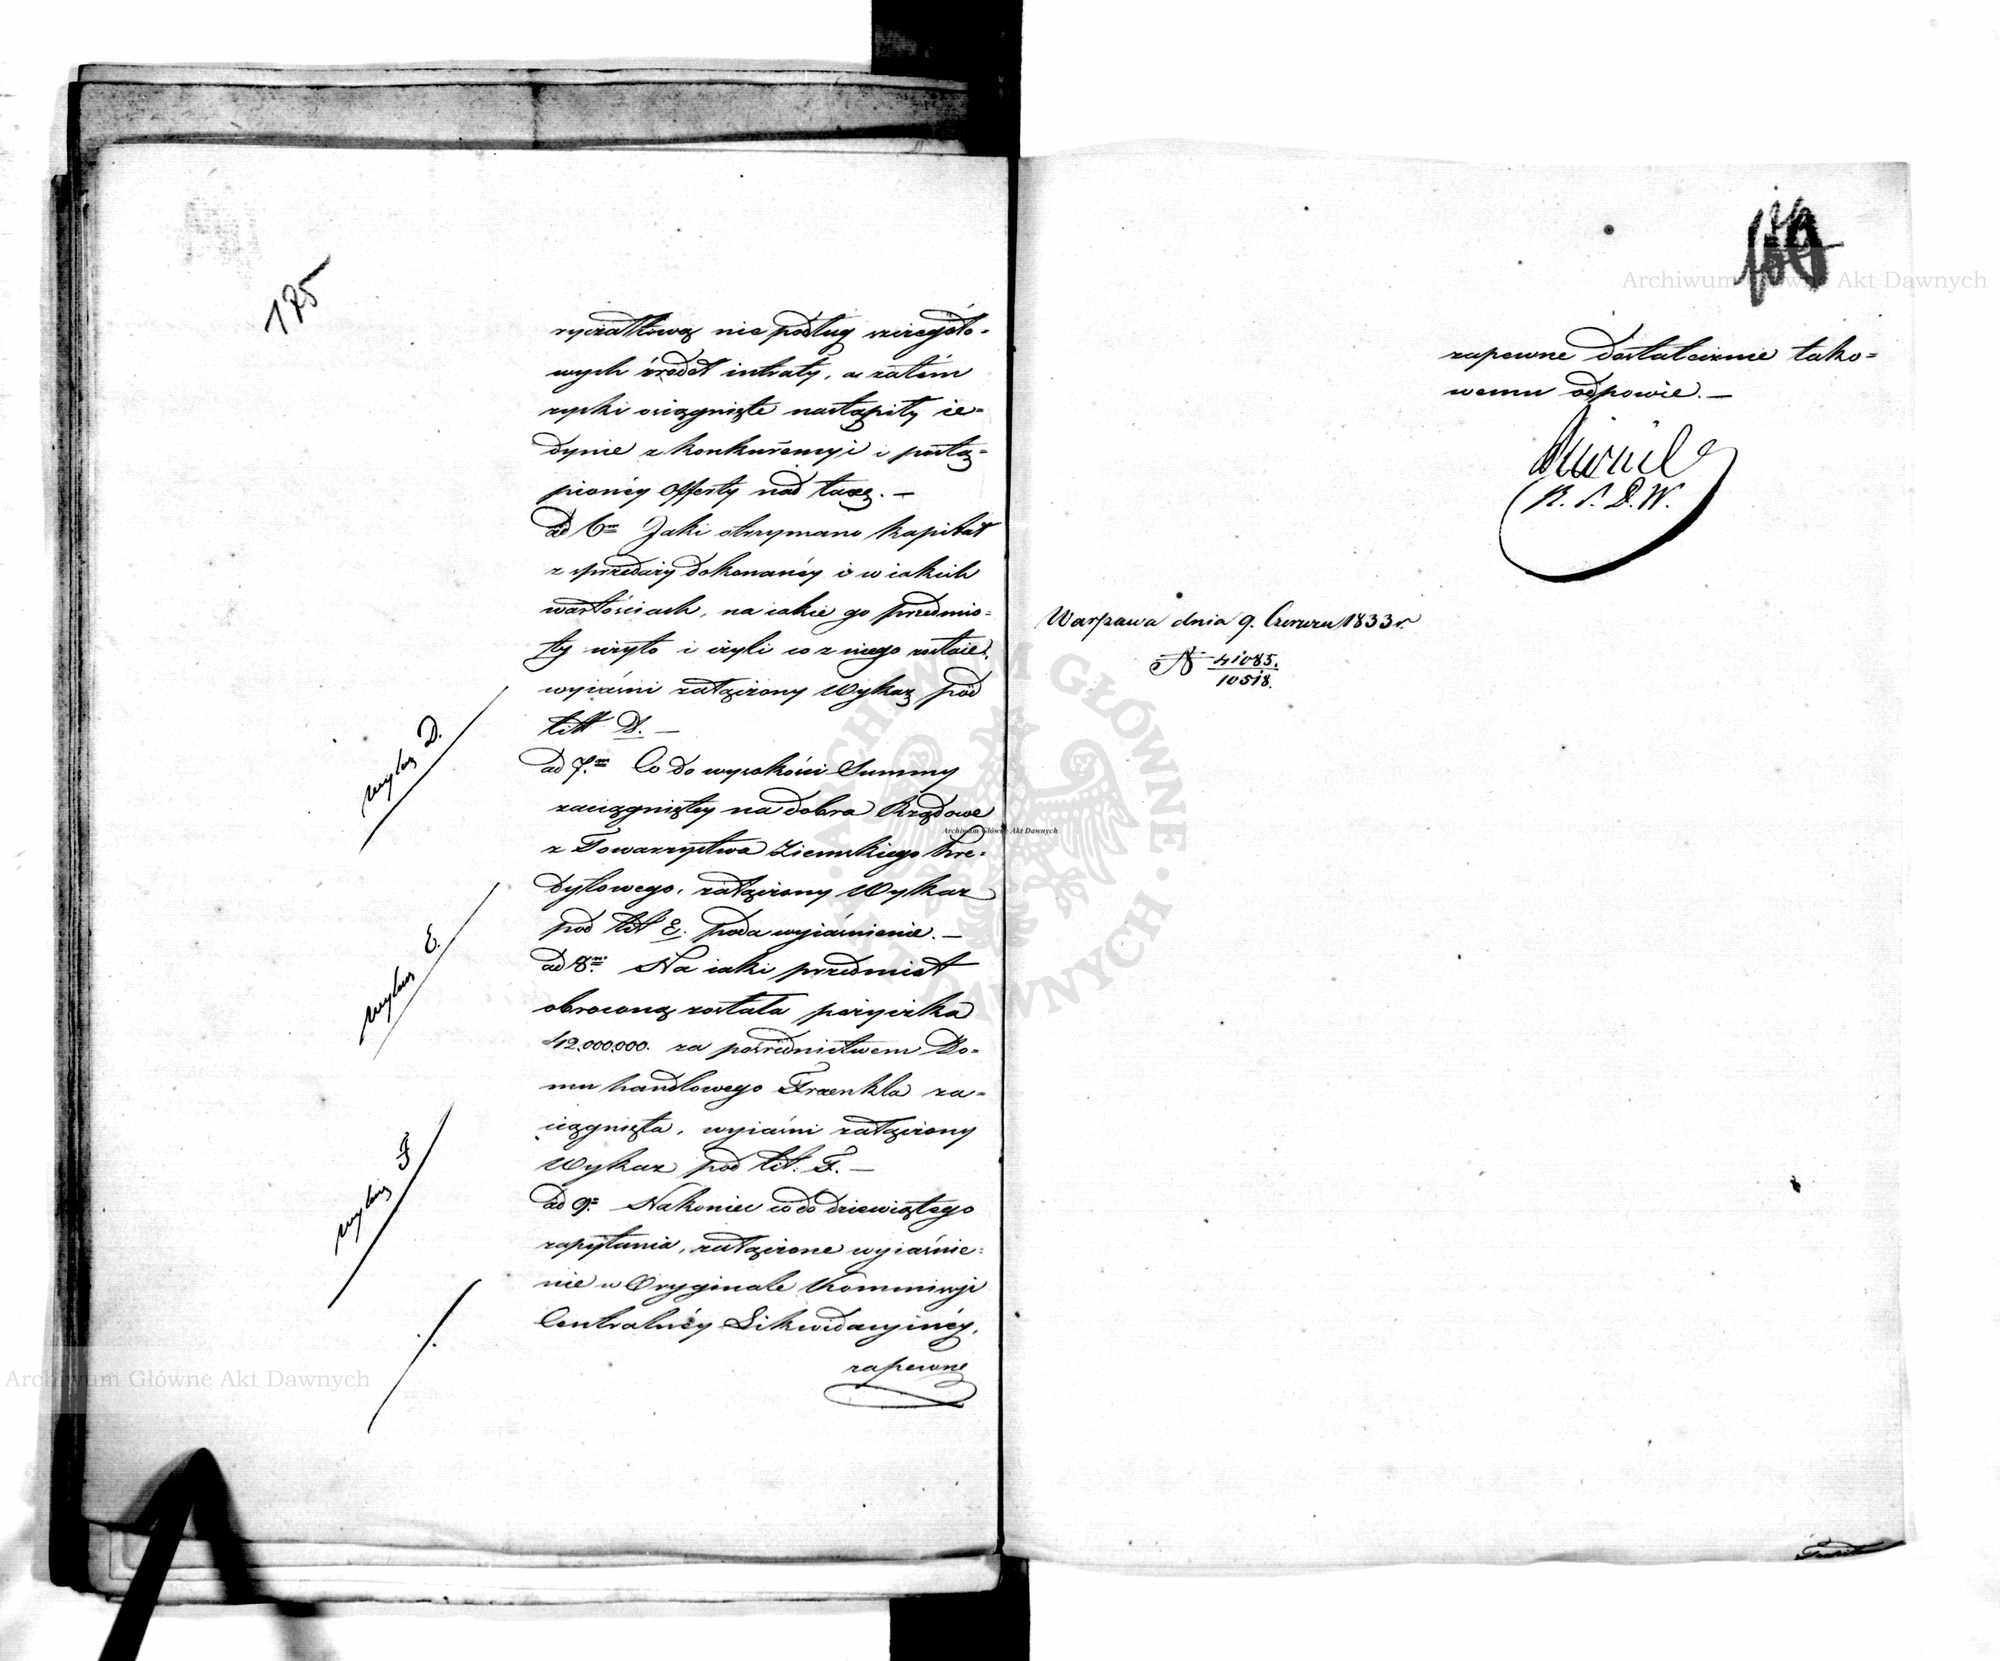 175
ryczałtową nie podług szczegóło-
wych źródeł intraty, a zatém
zyski osiągnięte nastąpiły ie-
dynie z konkurencyi i postą-
pionéy Offerty nad taxę. —
ad 6m Jaki otrzymano kapitał
z sprzedaży dokonanéy i w iakich
wartościach, na iakie go przedmio-
ty użyto i iżyli co z niego zostaie,
wyiaśni załączony Wykaz pod
litt D. —
wykaz D.
ad 7m. Co do wysokości Summy
zaciągniętey na dobra Rządowe
z Towarzystwa Ziemskiego Kre-
dytowego, załączony Wykaz
pod lit E. poda wyiaśnienie. —
wykaz E.
ad 8m. Na iaki przedmiot
obroconą została pożyczka
42.000.000. za pośrednictwem Do-
mu handlowego Fraenkla za-
ciągnięta, wyiaśni załączony
Wykaz pod lit. F. —
wykaz F
ad 9m. Nakoniec co do dziewiątego
zapytania, załączone wyiaśnie-
nie w Oryginale Kommissyi
Centralnéy Likwidacyinéy,
zapewne
zapewne dostatecznie tako-
wemu odpowie. —
R. S. D. W.
Warszawa dnia 9. Czerwca 1833 r.
N 41085.
10518.
Archiwum Główne Akt Dawnych
Archiwum Główne Akt Dawnych
Archiwum Główne Akt Dawnych
ARCHIWUM GŁÓWNE AKT DAWNYCH